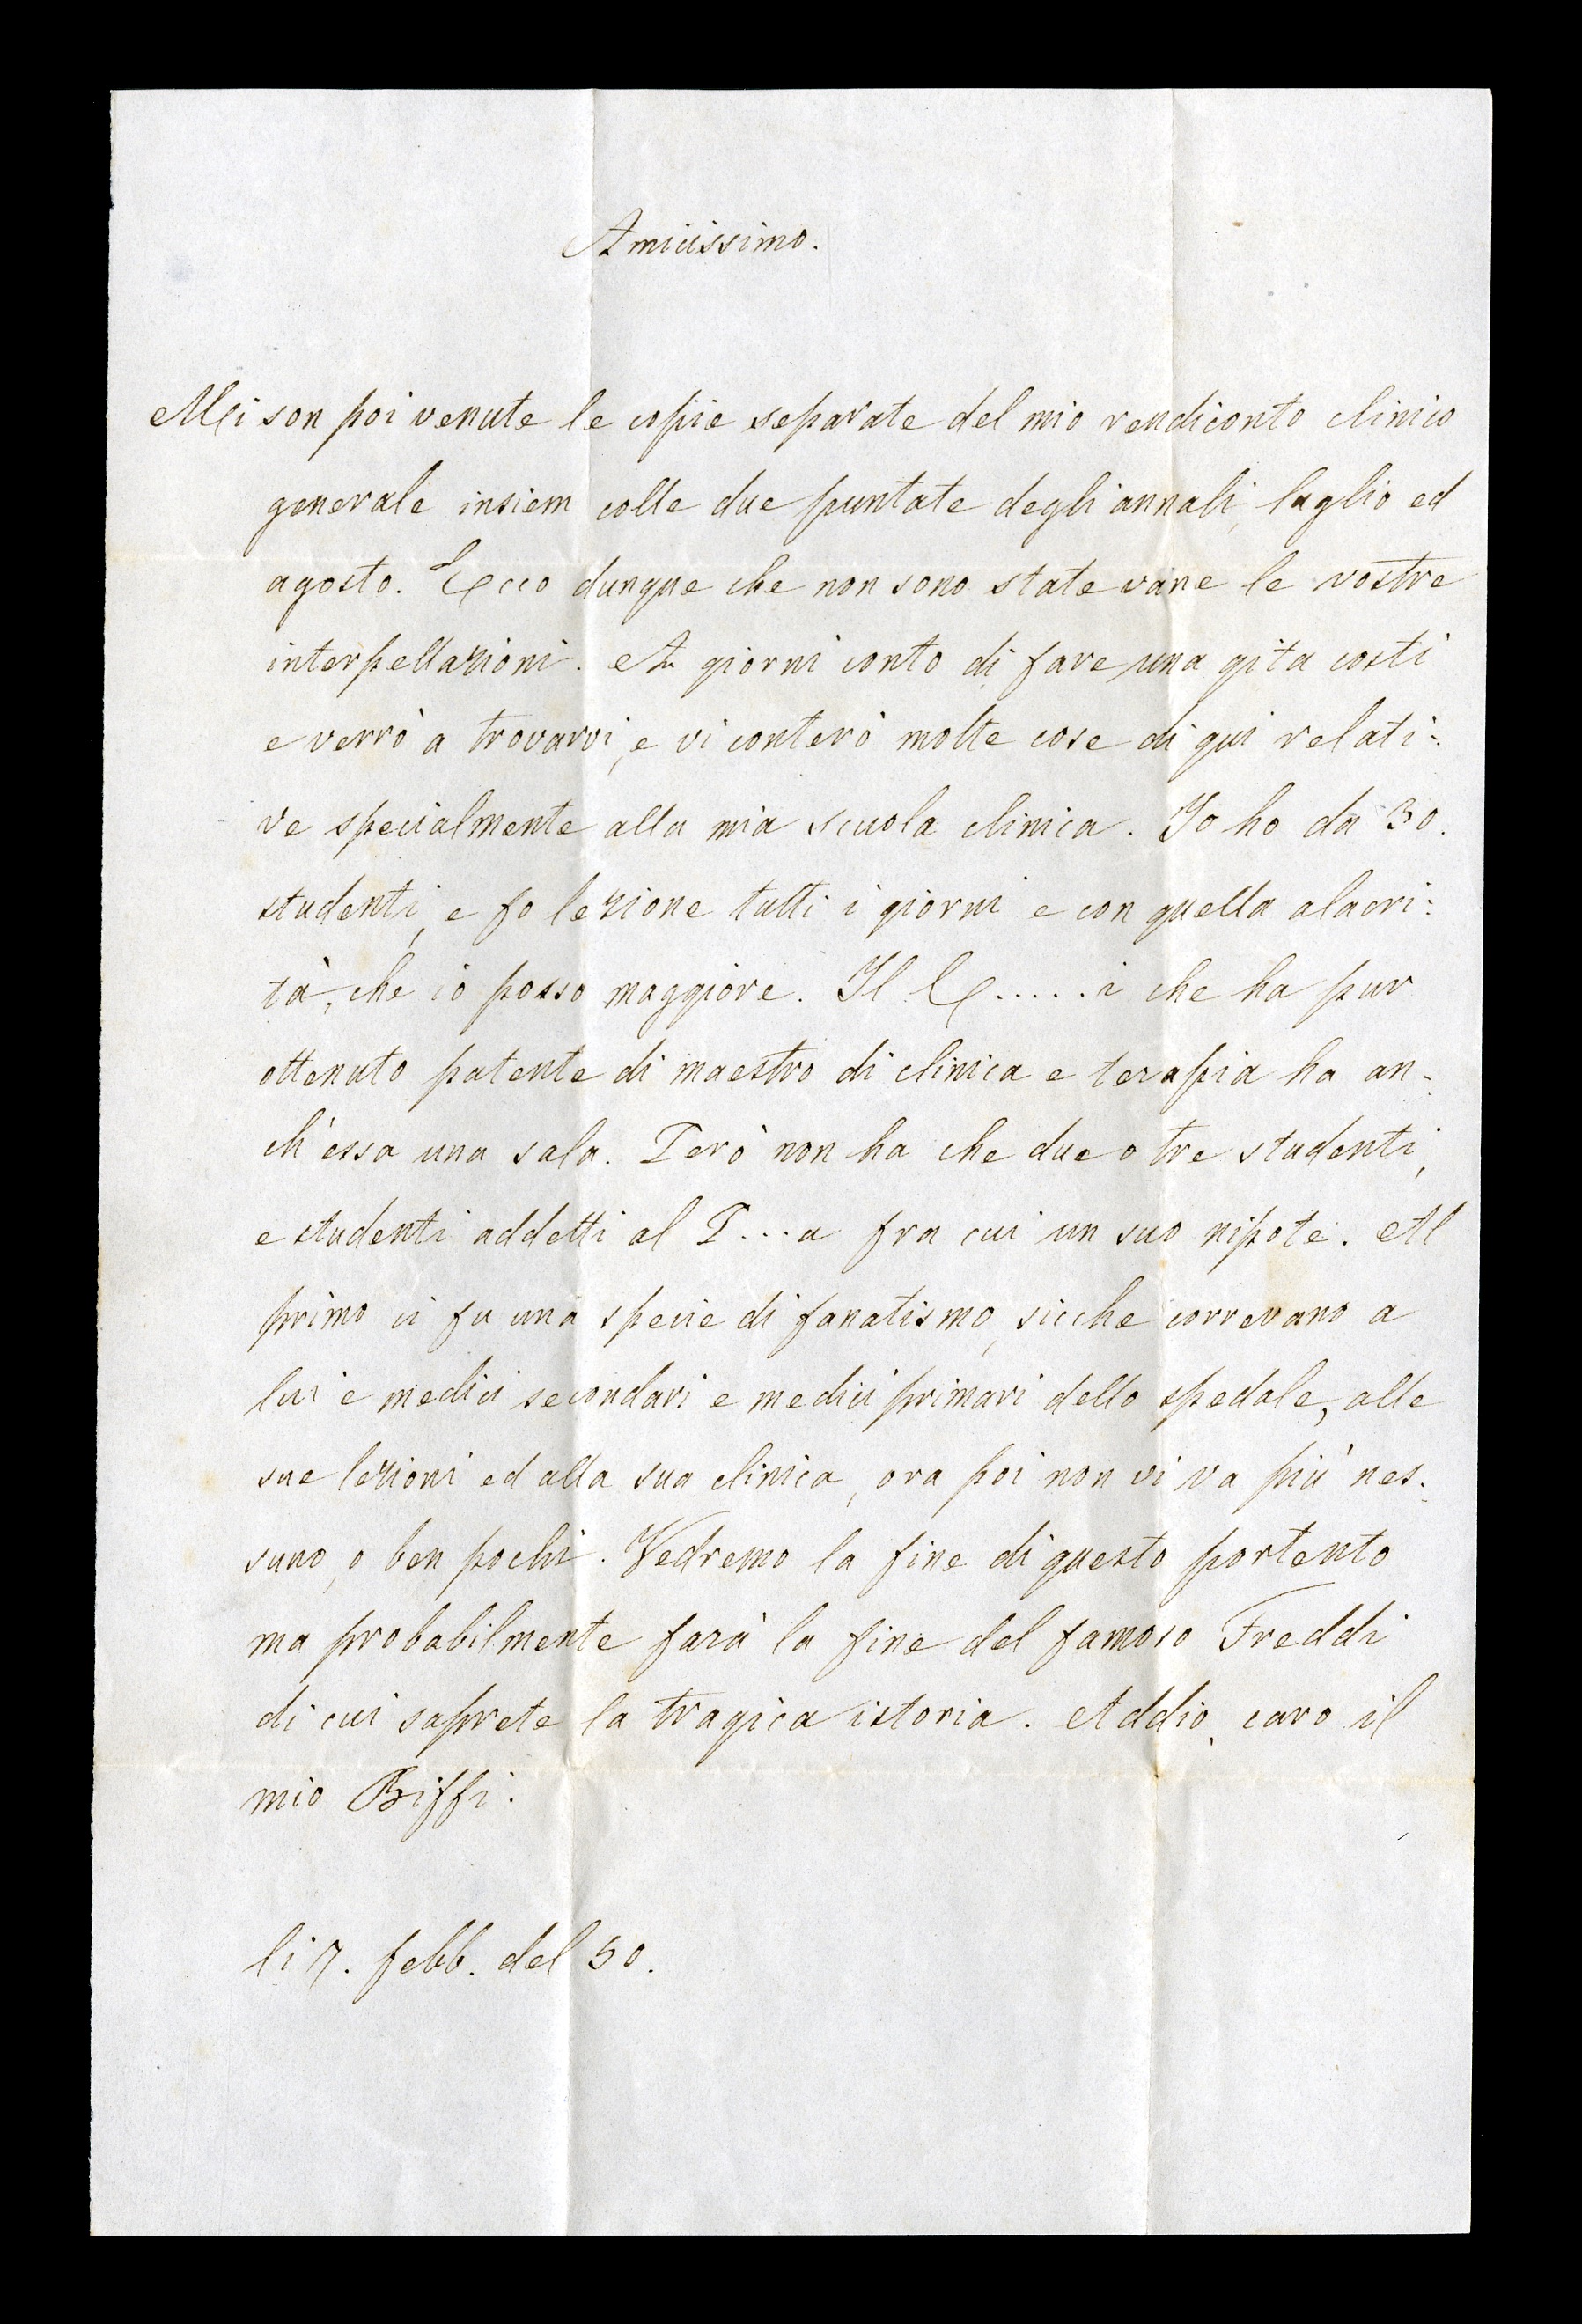 Amicissimo.
Mi son poi venute le copie separate del mio rendiconto clinico
generale insiem colle due puntate degli annali, luglio ed
agosto. Ecco dunque che non sono state vane le vostre
interpellazioni. A giorni conto di fare una gita costì
e verrò a trovarvi, e vi conterò molte cose di qui relati=
ve specialmente alla mia scuola clinica. Io ho da 30.
studenti, e fo lezione tutti i giorni e con quella alacri=
tà, che io posso maggiore. Il C.....i che ha pur
ottenuto patente di maestro di clinica e terapia ha an=
ch'essa una sala. Però non ha che due o tre studenti,
e studenti addetti al P...a fra cui un suo nipote. Al
primo ci fu una specie di fanatismo, sicche correvano a
lui e medici secondari e medici primari dello spedale, alle
sue lezioni ed alla sua clinica, ora poi non vi va più nes=
suno, o ben pochi. Vedremo la fine di questo portento
ma probabilmente farà la fine del famoso Freddi
di cui saprete la tragica istoria. Addio, caro il
mio Biffi.
li 7. febb. del 50.